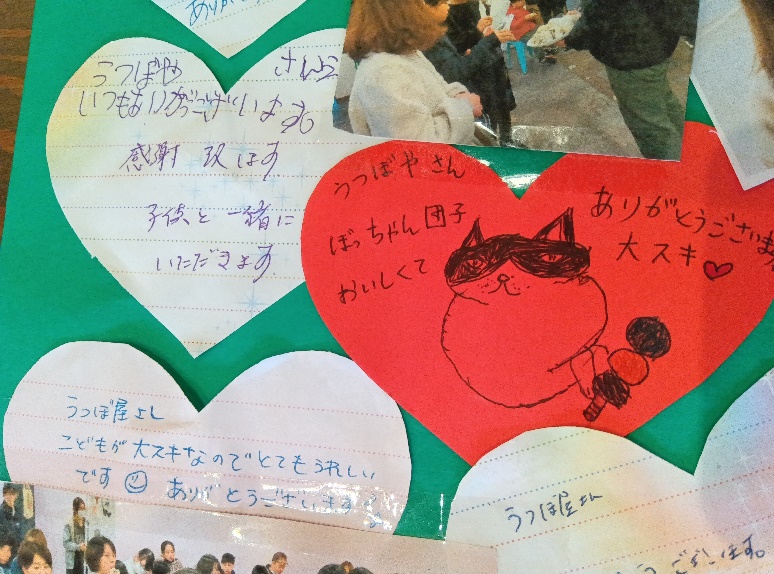 うつぼや さん
いつもありがとうございます。
感謝 致します
子供と一緒に
いただきます
うつぼやさん
ぼっちゃん団子
おいしくて
ありがとうございます
大スキ♡
うつぼ屋さん
こどもが大スキなのでとてもうれしい
です☺ ありがとうございます
うつぼ屋さん
うございます。